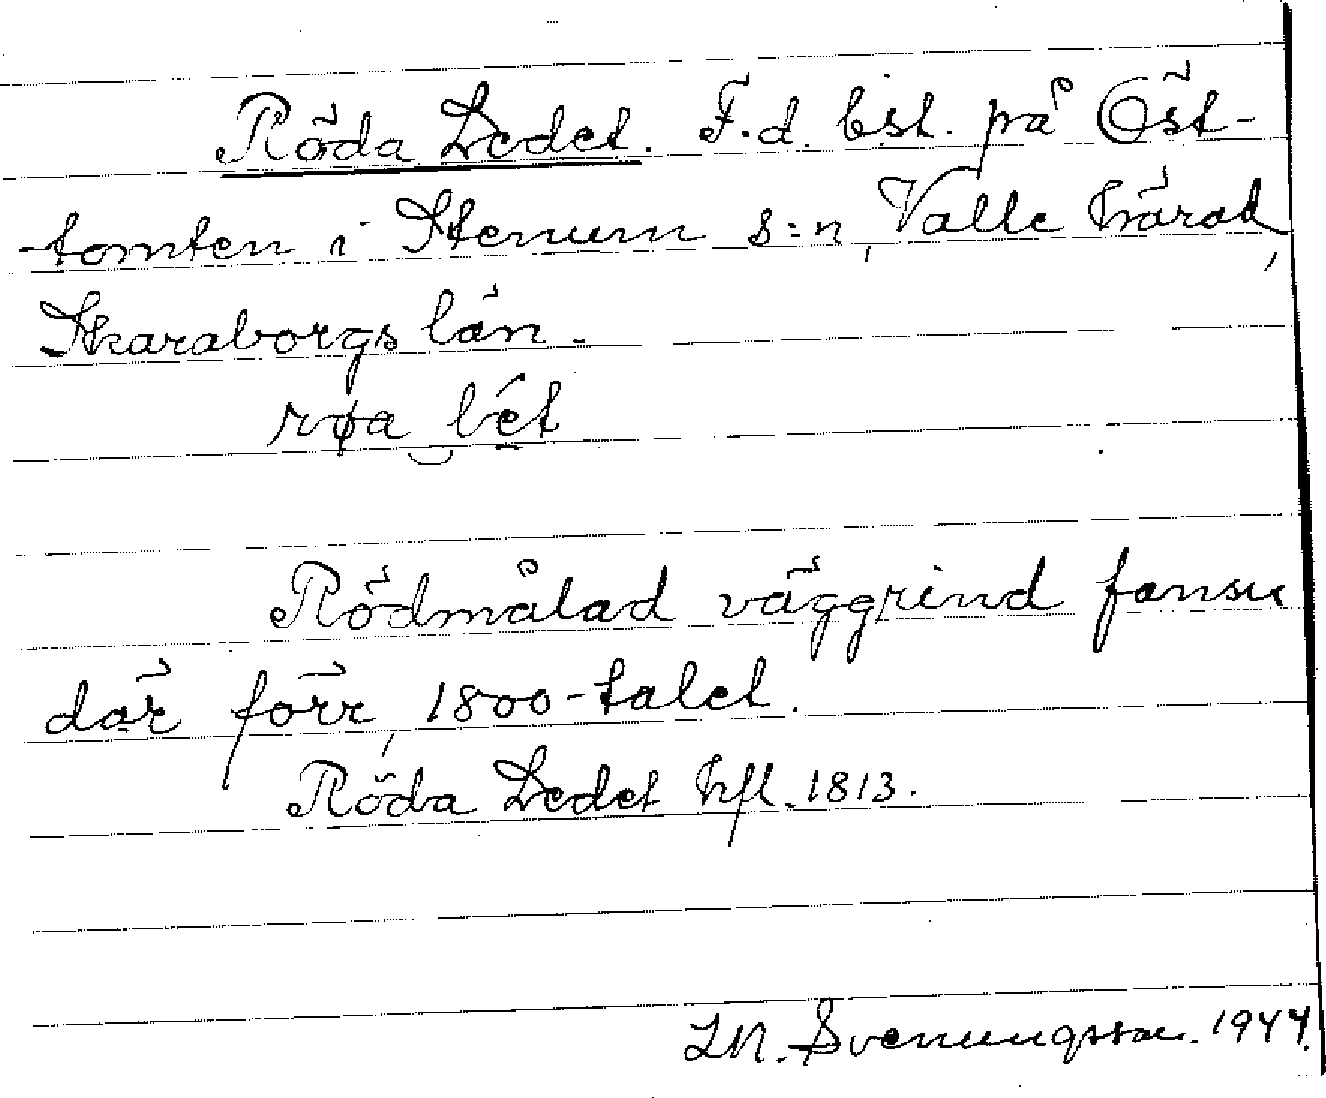 Röda Ledet. F.d. bst. på Öst-
-tomten i Stenum s:n, Valle härad,
Skaraborgs län.
røa lét
Rödmålad väggrind fanns
där förr, 1800-talet.
Röda Ledet hfl. 1813.
LM. Svenungsson. 1944.